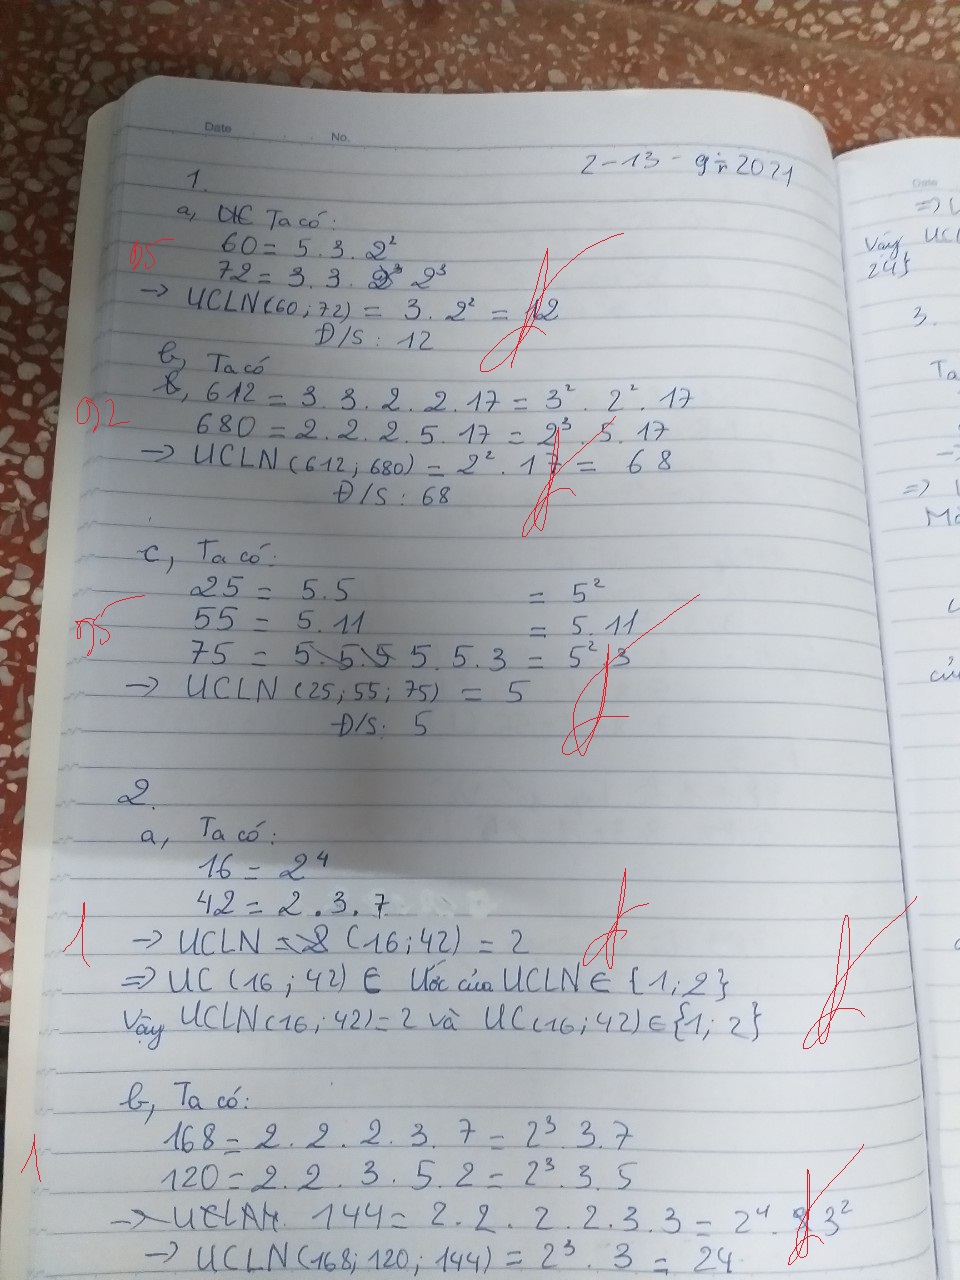 Date No.
2-13-9-2021
1.
a, Ta có:
60 = 5.3.2²
72 = 3.3. 2³
→ ƯCLN(60;72) = 3.2² = 12
Đ/S: 12
b, Ta có
612 = 3.3.2.2.17 = 3².2².17
0,2
680 = 2.2.2.5.17 = 2³.5.17
→ ƯCLN(612;680) = 2².17 = 68
Đ/S: 68
c, Ta có:
25 = 5.5 = 5²
55 = 5.11 = 5.11
75 = 5.5.3 = 5².3
→ ƯCLN(25;55;75) = 5
Đ/S: 5
2.
a, Ta có:
16 = 2⁴
42 = 2.3.7
1
→ ƯCLN (16;42) = 2
⇒ ƯC(16;42) ∈ Ước của ƯCLN ∈ {1;2}
Vậy ƯCLN(16;42)=2 và ƯC(16;42)∈{1;2}
b, Ta có:
168 = 2.2.2.3.7 = 2³.3.7
1
120 = 2.2.3.5.2 = 2³.3.5
144 = 2.2.2.2.3.3 = 2⁴.3²
→ ƯCLN(168;120;144) = 2³.3 = 24
Date
Vậy
24}
3.
Ta